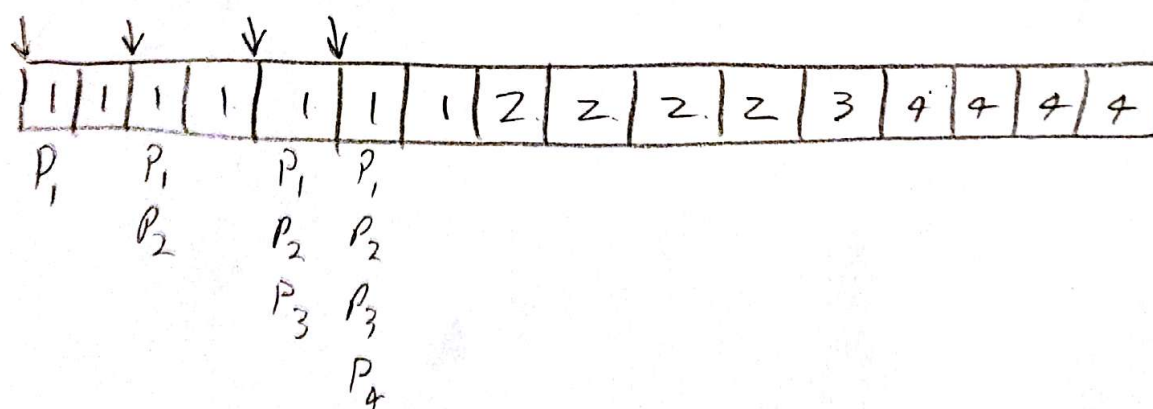 1 1 1 1 1 1 1 2 2 2 2 3 4 4 4 4
P₁ P₁ P₁ P₁
P₂ P₂ P₂
P₃ P₃
P₄